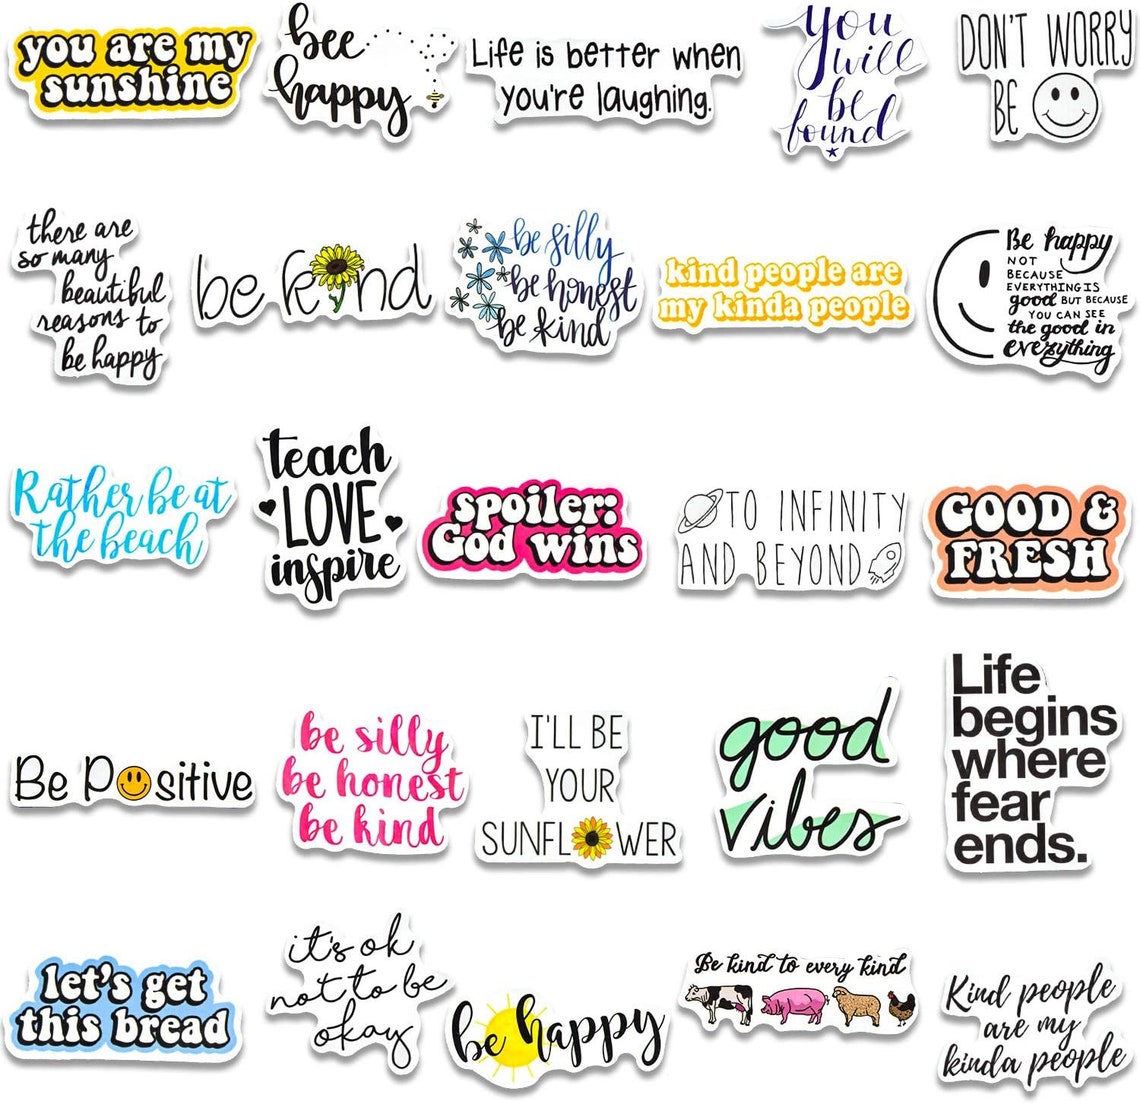 you are my
sunshine
bee
happy
Life is better when
you're laughing.
you
will
be
found
DON'T WORRY
BE
there are
so many
beautiful
reasons to
be happy
be kind
be silly
be honest
be kind
kind people are
my kinda people
Be happy
NOT
BECAUSE
EVERYTHING IS
good BUT BECAUSE
YOU CAN SEE
the good in
everything
Rather be at
the beach
teach
LOVE
inspire
spoiler:
God wins
TO INFINITY
AND BEYOND
GOOD &
FRESH
Be Positive
be silly
be honest
be kind
I'LL BE
YOUR
SUNFLOWER
good
vibes
Life
begins
where
fear
ends.
let's get
this bread
it's ok
not to be
okay
be happy
Be kind to every kind
Kind people
are my
kinda people